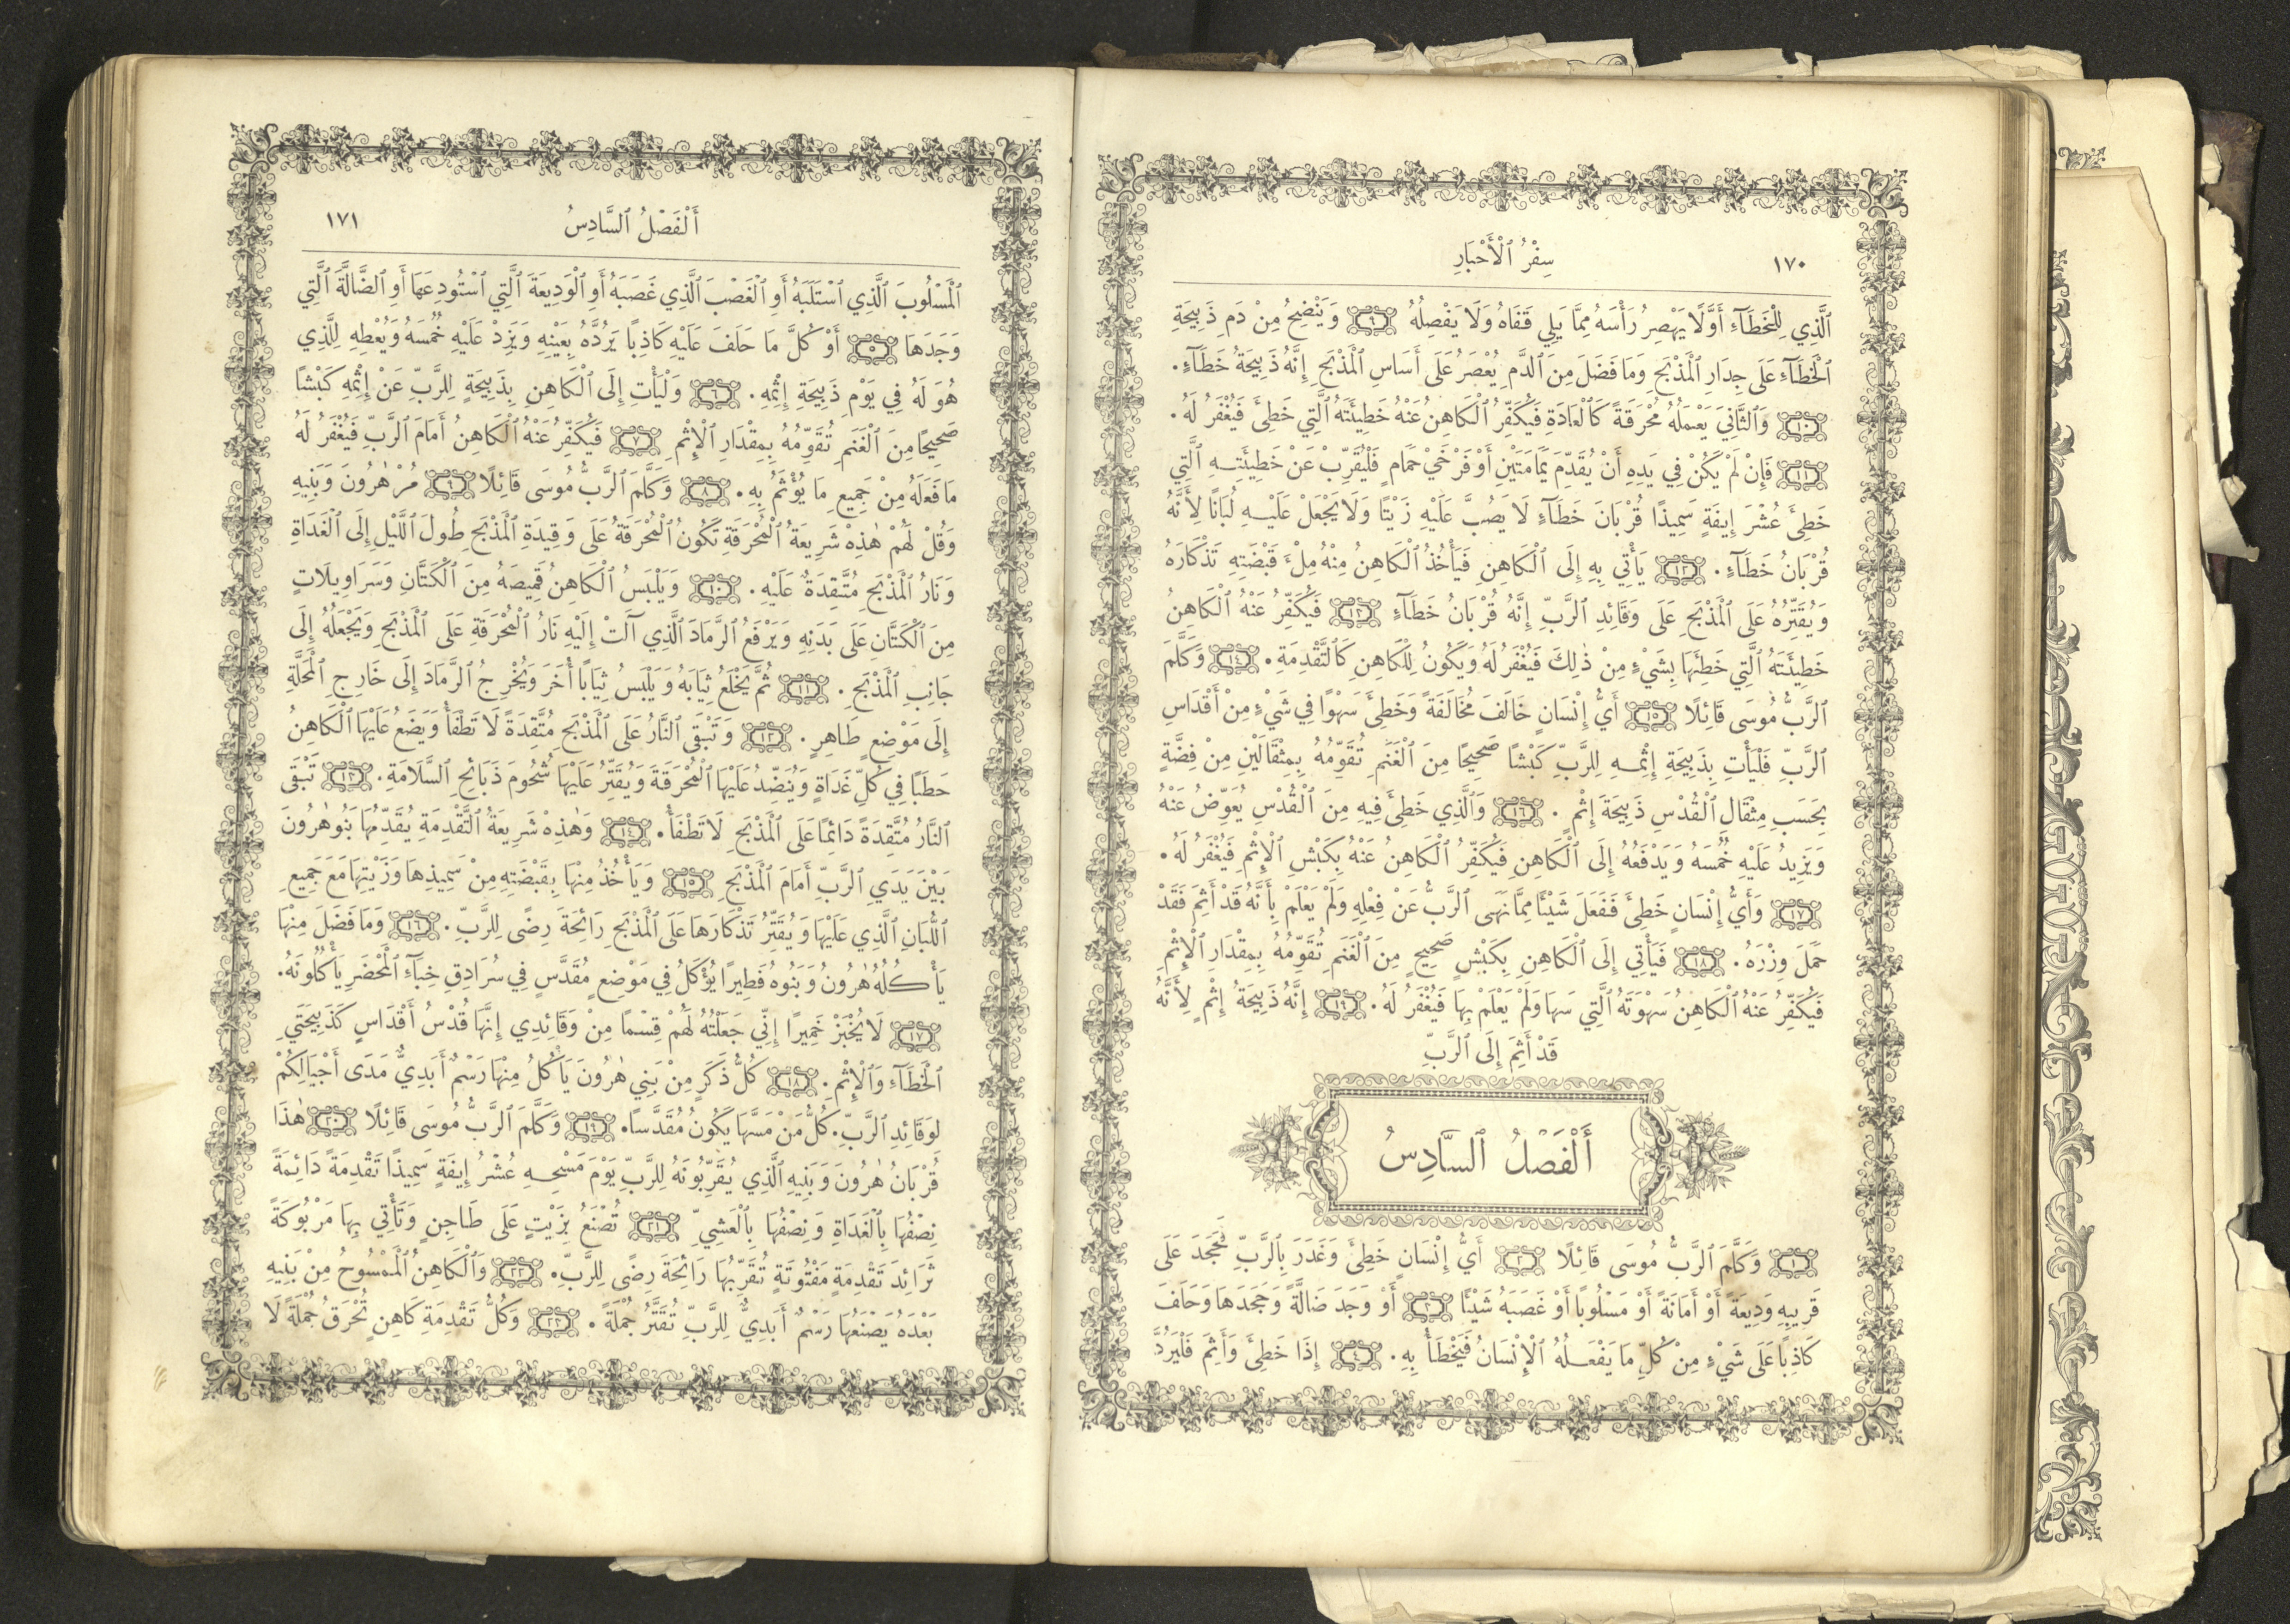 ١٧٠ سِفْرُ ٱلْأَحْبَارِ
ٱلَّذِي لِلْخَطَآءِ أَوَّلًا يَهْصِرُ رَأْسَهُ مِمَّا يَلِي قَفَاهُ وَلَا يَفْصِلُهُ ٩ وَيَنْضِحُ مِنْ دَمِ ذَبِيحَةِ
ٱلْخَطَآءِ عَلَى جِدَارِ ٱلْمَذْبَحِ وَمَا فَضَلَ مِنَ ٱلدَّمِ يُعْصَرُ عَلَى أَسَاسِ ٱلْمَذْبَحِ إِنَّهُ ذَبِيحَةُ خَطَآءٍ.
١٠ وَٱلثَّانِيَ يَعْمَلُهُ مُحْرَقَةً كَٱلْعَادَةِ فَيُكَفِّرُ ٱلْكَاهِنُ عَنْهُ خَطِيئَتَهُ ٱلَّتِي خَطِئَ فَيُغْفَرُ لَهُ.
١١ فَإِنْ لَمْ يَكُنْ فِي يَدِهِ أَنْ يُقَدِّمَ يَمَامَتَيْنِ أَوْ فَرْخَيْ حَمَامٍ فَلْيُقَرِّبْ عَنْ خَطِيئَتِهِ ٱلَّتِي
خَطِئَ عُشْرَ إِيفَةٍ سَمِيذًا قُرْبَانَ خَطَآءٍ لَا يَصُبَّ عَلَيْهِ زَيْتًا وَلَا يَجْعَلْ عَلَيْهِ لُبَانًا لِأَنَّهُ
قُرْبَانُ خَطَآءٍ. ١٢ يَأْتِي بِهِ إِلَى ٱلْكَاهِنِ فَيَأْخُذُ ٱلْكَاهِنُ مِنْهُ مِلْءَ قَبْضَتِهِ تَذْكَارَهُ
وَيُقَتِّرُهُ عَلَى ٱلْمَذْبَحِ عَلَى وَقَائِدِ ٱلرَّبِّ إِنَّهُ قُرْبَانُ خَطَآءٍ ١٣ فَيُكَفِّرُ عَنْهُ ٱلْكَاهِنُ
خَطِيئَتَهُ ٱلَّتِي خَطِئَهَا بِشَيْءٍ مِنْ ذٰلِكَ فَيُغْفَرُ لَهُ وَيَكُونُ لِلْكَاهِنِ كَٱلتَّقْدِمَةِ. ١٤ وَكَلَّمَ
ٱلرَّبُّ مُوسَى قَائِلًا ١٥ أَيُّ إِنْسَانٍ خَالَفَ مُخَالَفَةً وَخَطِئَ سَهْوًا فِي شَيْءٍ مِنْ أَقْدَاسِ
ٱلرَّبِّ فَلْيَأْتِ بِذَبِيحَةِ إِثْمِهِ لِلرَّبِّ كَبْشًا صَحِيحًا مِنَ ٱلْغَنَمِ تُقَوِّمُهُ بِمِثْقَالَيْنِ مِنْ فِضَّةٍ
بِحَسَبِ مِثْقَالِ ٱلْقُدْسِ ذَبِيحَةَ إِثْمٍ. ١٦ وَٱلَّذِي خَطِئَ فِيهِ مِنَ ٱلْقُدْسِ يُعَوِّضُ عَنْهُ
وَيَزِيدُ عَلَيْهِ خُمْسَهُ وَيَدْفَعُهُ إِلَى ٱلْكَاهِنِ فَيُكَفِّرُ ٱلْكَاهِنُ عَنْهُ بِكَبْشِ ٱلْإِثْمِ فَيُغْفَرُ لَهُ.
١٧ وَأَيُّ إِنْسَانٍ خَطِئَ فَفَعَلَ شَيْئًا مِمَّا نَهَى ٱلرَّبُّ عَنْ فِعْلِهِ وَلَمْ يَعْلَمْ بِأَنَّهُ قَدْ أَثِمَ فَقَدْ
حَمَلَ وِزْرَهُ. ١٨ فَيَأْتِي إِلَى ٱلْكَاهِنِ بِكَبْشٍ صَحِيحٍ مِنَ ٱلْغَنَمِ تُقَوِّمُهُ بِمِقْدَارِ ٱلْإِثْمِ
فَيُكَفِّرُ عَنْهُ ٱلْكَاهِنُ سَهْوَتَهُ ٱلَّتِي سَهَا وَلَمْ يَعْلَمْ بِهَا فَيُغْفَرُ لَهُ. ١٩ إِنَّهُ ذَبِيحَةُ إِثْمٍ لِأَنَّهُ
قَدْ أَثِمَ إِلَى ٱلرَّبِّ
أَلْفَصْلُ ٱلسَّادِسُ
١ وَكَلَّمَ ٱلرَّبُّ مُوسَى قَائِلًا ٢ أَيُّ إِنْسَانٍ خَطِئَ وَغَدَرَ بِٱلرَّبِّ فَجَحَدَ عَلَى
قَرِيبِهِ وَدِيعَةً أَوْ أَمَانَةً أَوْ مَسْلُوبًا أَوْ غَصَبَهُ شَيْئًا ٣ أَوْ وَجَدَ ضَالَّةً وَجَحَدَهَا وَحَلَفَ
كَاذِبًا عَلَى شَيْءٍ مِنْ كُلِّ مَا يَفْعَلُهُ ٱلْإِنْسَانُ فَيَخْطَأُ بِهِ. ٤ إِذَا خَطِئَ وَأَثِمَ فَلْيَرُدَّ
أَلْفَصْلُ ٱلسَّادِسُ ١٧١
ٱلْمَسْلُوبَ ٱلَّذِي ٱسْتَلَبَهُ أَوِ ٱلْغَصْبَ ٱلَّذِي غَصَبَهُ أَوِ ٱلْوَدِيعَةَ ٱلَّتِي ٱسْتُودِعَهَا أَوِ ٱلضَّالَّةَ ٱلَّتِي
وَجَدَهَا ٥ أَوْ كُلَّ مَا حَلَفَ عَلَيْهِ كَاذِبًا يَرُدُّهُ بِعَيْنِهِ وَيَزِدْ عَلَيْهِ خُمْسَهُ وَيُعْطِهِ لِلَّذِي
هُوَ لَهُ فِي يَوْمِ ذَبِيحَةِ إِثْمِهِ. ٦ وَلْيَأْتِ إِلَى ٱلْكَاهِنِ بِذَبِيحَةٍ لِلرَّبِّ عَنْ إِثْمِهِ كَبْشًا
صَحِيحًا مِنَ ٱلْغَنَمِ تُقَوِّمُهُ بِمِقْدَارِ ٱلْإِثْمِ ٧ فَيُكَفِّرُ عَنْهُ ٱلْكَاهِنُ أَمَامَ ٱلرَّبِّ فَيُغْفَرُ لَهُ
مَا فَعَلَهُ مِنْ جَمِيعِ مَا يُؤْثَمُ بِهِ. ٨ وَكَلَّمَ ٱلرَّبُّ مُوسَى قَائِلًا ٩ مُرْ هٰرُونَ وَبَنِيهِ
وَقُلْ لَهُمْ هٰذِهْ شَرِيعَةُ ٱلْمُحْرَقَةِ تَكُونُ ٱلْمُحْرَقَةُ عَلَى وَقِيدَةِ ٱلْمَذْبَحِ طُولَ ٱللَّيْلِ إِلَى ٱلْغَدَاةِ
وَنَارُ ٱلْمَذْبَحِ مُتَّقِدَةٌ عَلَيْهِ. ١٠ وَيَلْبَسُ ٱلْكَاهِنُ قَمِيصَهُ مِنَ ٱلْكَتَّانِ وَسَرَاوِيلَاتٍ
مِنَ ٱلْكَتَّانِ عَلَى بَدَنِهِ وَيَرْفَعُ ٱلرَّمَادَ ٱلَّذِي آلَتْ إِلَيْهِ نَارُ ٱلْمُحْرَقَةِ عَلَى ٱلْمَذْبَحِ وَيَجْعَلُهُ إِلَى
جَانِبِ ٱلْمَذْبَحِ. ١١ ثُمَّ يَخْلَعُ ثِيَابَهُ وَيَلْبَسُ ثِيَابًا أُخَرَ وَيُخْرِجُ ٱلرَّمَادَ إِلَى خَارِجِ ٱلْمَحَلَّةِ
إِلَى مَوْضِعٍ طَاهِرٍ. ١٢ وَتَبْقَى ٱلنَّارُ عَلَى ٱلْمَذْبَحِ مُتَّقِدَةً لَا تَطْفَأْ وَيَضَعُ عَلَيْهَا ٱلْكَاهِنُ
حَطَبًا فِي كُلِّ غَدَاةٍ وَيُنَضِّدُ عَلَيْهَا ٱلْمُحْرَقَةَ وَيُقَتِّرُ عَلَيْهَا شُحُومَ ذَبَائِحِ ٱلسَّلَامَةِ. ١٣ تَبْقَى
ٱلنَّارُ مُتَّقِدَةً دَائِمًا عَلَى ٱلْمَذْبَحِ لَا تَطْفَأْ. ١٤ وَهٰذِهْ شَرِيعَةُ ٱلتَّقْدِمَةِ يُقَدِّمُهَا بَنُو هٰرُونَ
بَيْنَ يَدَيِ ٱلرَّبِّ أَمَامَ ٱلْمَذْبَحِ ١٥ وَيَأْخُذُ مِنْهَا بِقَبْضَتِهِ مِنْ سَمِيذِهَا وَزَيْتِهَا مَعَ جَمِيعِ
ٱللُّبَانِ ٱلَّذِي عَلَيْهَا وَيُقَتِّرُ تَذْكَارَهَا عَلَى ٱلْمَذْبَحِ رَائِحَةَ رِضًى لِلرَّبِّ. ١٦ وَمَا فَضَلَ مِنْهَا
يَأْكُلُهُ هٰرُونُ وَبَنُوهُ فَطِيرًا يُؤْكَلُ فِي مَوْضِعٍ مُقَدَّسٍ فِي سُرَادِقِ خِبَآءِ ٱلْمَحْضَرِ يَأْكُلُونَهُ.
١٧ لَا يُخْبَزْ خَمِيرًا إِنِّي جَعَلْتُهُ لَهُمْ قِسْمًا مِنْ وَقَائِدِي إِنَّهَا قُدْسُ أَقْدَاسٍ كَذَبِيحَتَيِ
ٱلْخَطَآءِ وَٱلْإِثْمِ. ١٨ كُلُّ ذَكَرٍ مِنْ بَنِي هٰرُونَ يَأْكُلُ مِنْهَا رَسْمٌ أَبَدِيٌّ مَدَى أَجْيَالِكُمْ
لِوَقَائِدِ ٱلرَّبِّ. كُلُّ مَنْ مَسَّهَا يَكُونُ مُقَدَّسًا. ١٩ وَكَلَّمَ ٱلرَّبُّ مُوسَى قَائِلًا ٢٠ هٰذَا
قُرْبَانُ هٰرُونَ وَبَنِيهِ ٱلَّذِي يُقَرِّبُونَهُ لِلرَّبِّ يَوْمَ مَسْحِهِ عُشْرُ إِيفَةٍ سَمِيذًا تَقْدِمَةً دَائِمَةً
نِصْفُهَا بِٱلْغَدَاةِ وَنِصْفُهَا بِٱلْعَشِيِّ ٢١ تُصْنَعُ بِزَيْتٍ عَلَى طَاجِنٍ وَتَأْتِي بِهَا مَرْبُوكَةً
ثَرَائِدَ تَقْدِمَةٍ مَفْتُوتَةٍ تُقَرِّبُهَا رَائِحَةَ رِضًى لِلرَّبِّ. ٢٢ وَٱلْكَاهِنُ ٱلْمَمْسُوحُ مِنْ بَنِيهِ
بَعْدَهُ يَصْنَعُهَا رَسْمٌ أَبَدِيٌّ لِلرَّبِّ تُقَتَّرُ جُمْلَةً. ٢٣ وَكُلُّ تَقْدِمَةِ كَاهِنٍ تُحْرَقُ جُمْلَةً لَا